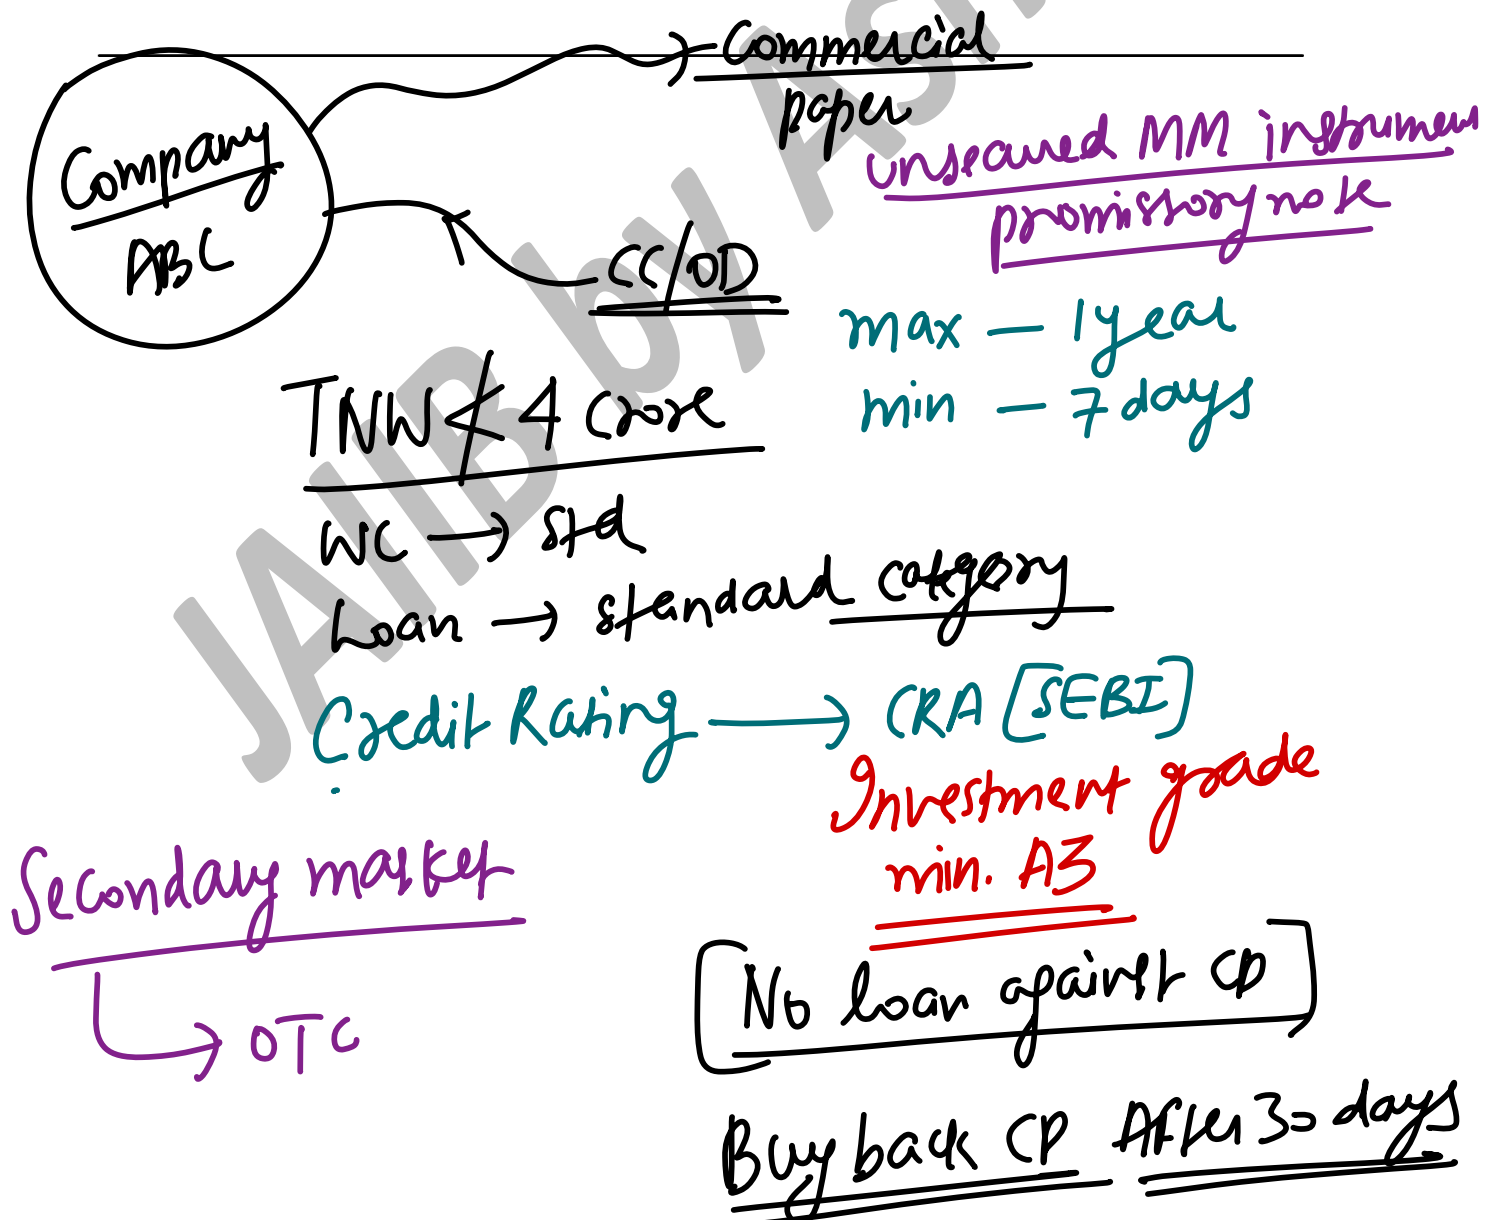 Commercial
paper
Company
ABC
unsecured MM instrument
promissory note
CC/OD
max — 1 year
min — 7 days
TNW ≮ 4 Crore
WC → Std
Loan → standard category
Credit Rating → CRA [SEBI]
Investment grade
min. A3
Secondary market
→ OTC
[No loan against CP]
Buy back CP After 30 days
JAIIB by